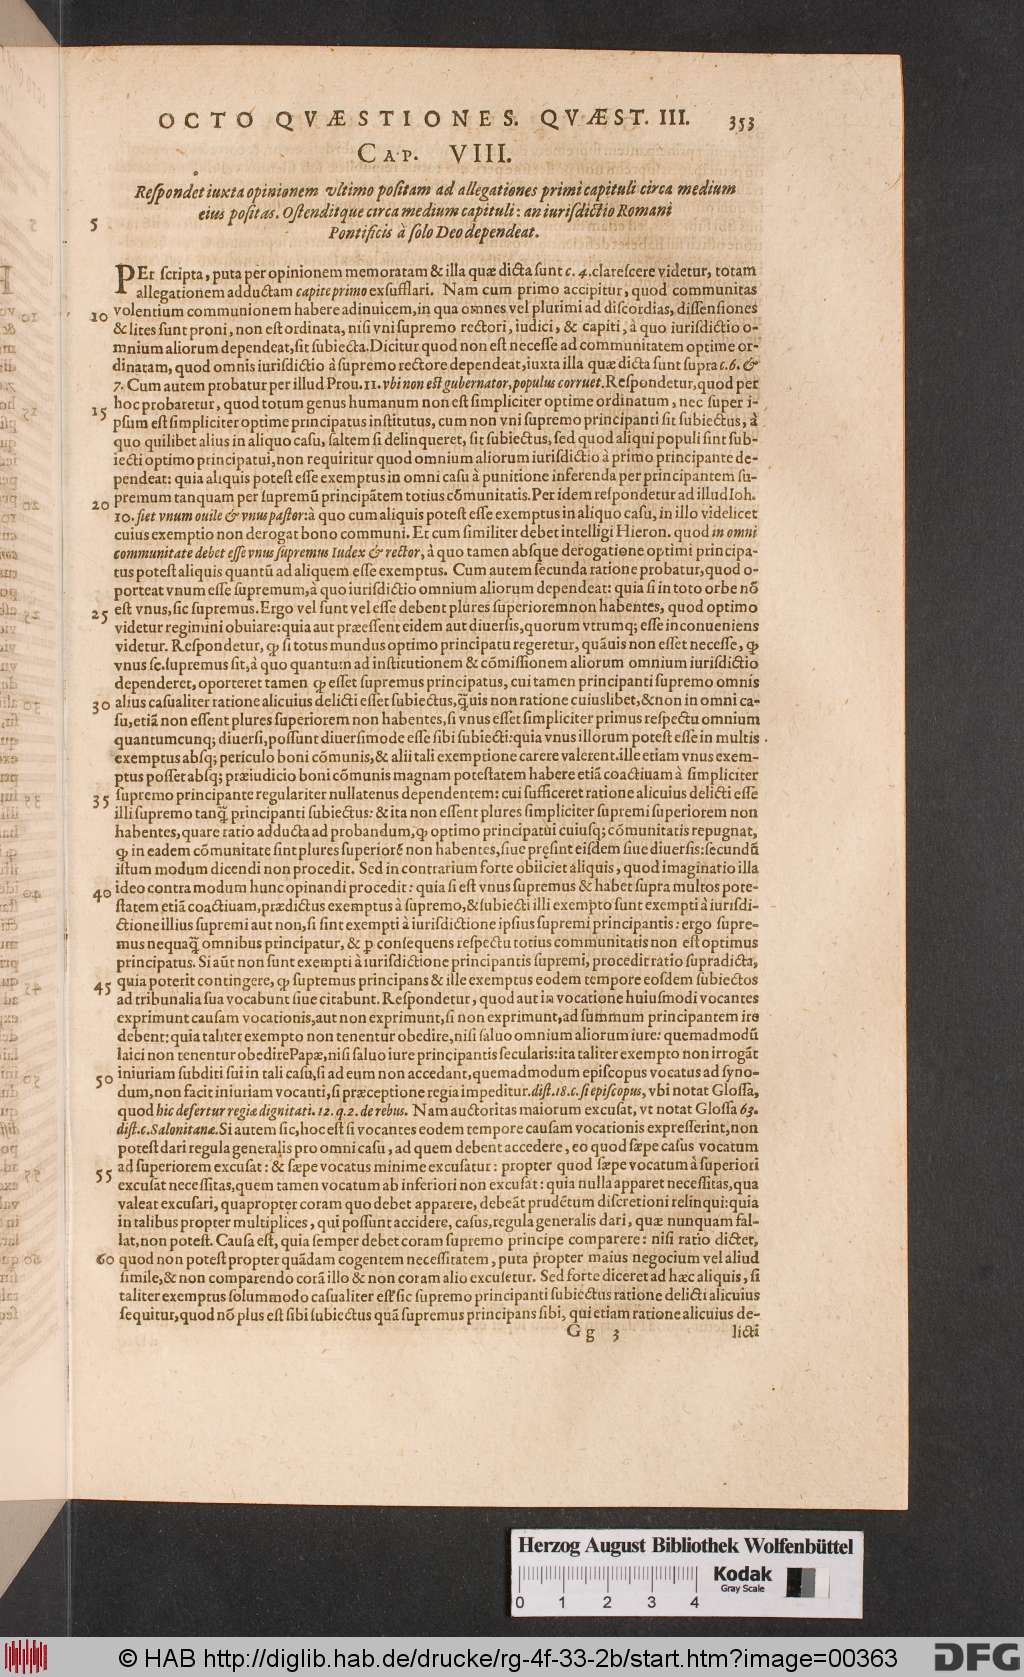 OCTO QVÆSTIONES. QVÆST. III. 353
CAP. VIII.
Respondet iuxta opinionem vltimo positam ad allegationes primi capituli circa medium
eius positas. Ostenditque circa medium capituli: an iurisdictio Romani
5 Pontificis à solo Deo dependeat.
PEr scripta, puta per opinionem memoratam & illa quæ dicta sunt c. 4. clarescere videtur, totam
allegationem adductam capite primo exsufflari. Nam cum primo accipitur, quod communitas
10 volentium communionem habere adinuicem, in qua omnes vel plurimi ad discordias, dissensiones
& lites sunt proni, non est ordinata, nisi vni supremo rectori, iudici, & capiti, à quo iurisdictio o-
mnium aliorum dependeat, sit subiecta. Dicitur quod non est necesse ad communitatem optime or-
dinatam, quod omnis iurisdictio à supremo rectore dependeat, iuxta illa quæ dicta sunt supra c. 6. &
7. Cum autem probatur per illud Prou. 11. vbi non est gubernator, populus corruet. Respondetur, quod per
15 hoc probaretur, quod totum genus humanum non est simpliciter optime ordinatum, nec super i-
psum est simpliciter optime principatus institutus, cum non vni supremo principanti sit subiectus, à
quo quilibet alius in aliquo casu, saltem si delinqueret, sit subiectus, sed quod aliqui populi sint sub-
iecti optimo principatui, non requiritur quod omnium aliorum iurisdictio à primo principante de-
pendeat: quia aliquis potest esse exemptus in omni casu à punitione inferenda per principantem su-
20 premum tanquam per supremũ principãtem totius cõmunitatis. Per idem respondetur ad illud Ioh.
10. fiet vnum ouile & vnus pastor: à quo cum aliquis potest esse exemptus in aliquo casu, in illo videlicet
cuius exemptio non derogat bono communi. Et cum similiter debet intelligi Hieron. quod in omni
communitate debet esse vnus supremus Iudex & rector, à quo tamen absque derogatione optimi principa-
tus potest aliquis quantũ ad aliquem esse exemptus. Cum autem secunda ratione probatur, quod o-
porteat vnum esse supremum, à quo iurisdictio omnium aliorum dependeat: quia si in toto orbe nõ
25 est vnus, sic supremus. Ergo vel sunt vel esse debent plures superiorem non habentes, quod optimo
videtur regimini obuiare: quia aut præessent eidem aut diuersis, quorum vtrumq; esse inconueniens
videtur. Respondetur, ꝙ si totus mundus optimo principatu regeretur, quãuis non esset necesse, ꝙ
vnus sc. supremus sit, à quo quantum ad institutionem & cõmissionem aliorum omnium iurisdictio
dependeret, oporteret tamen ꝙ esset supremus principatus, cui tamen principanti supremo omnis
30 alius casualiter ratione alicuius delicti esset subiectus, q̃uis non ratione cuiuslibet, & non in omni ca-
su, etiã non essent plures superiorem non habentes, si vnus esset simpliciter primus respectu omnium
quantumcunq; diuersi, possunt diuersimode esse sibi subiecti: quia vnus illorum potest esse in multis
exemptus absq; periculo boni cõmunis, & alii tali exemptione carere valerent. ille etiam vnus exem-
ptus posset absq; præiudicio boni cõmunis magnam potestatem habere etiã coactiuam à simpliciter
35 supremo principante regulariter nullatenus dependentem: cui sufficeret ratione alicuius delicti esse
illi supremo tanq̃ principanti subiectus: & ita non essent plures simpliciter supremi superiorem non
habentes, quare ratio adducta ad probandum, ꝙ optimo principatui cuiusq; cõmunitatis repugnat,
ꝙ in eadem cõmunitate sint plures superiorẽ non habentes, siue pręsint eisdem siue diuersis: secundũ
istum modum dicendi non procedit. Sed in contrarium forte obiiciet aliquis, quod imaginatio illa
40 ideo contra modum hunc opinandi procedit: quia si est vnus supremus & habet supra multos pote-
statem etiã coactiuam, prædictus exemptus à supremo, & subiecti illi exempto sunt exempti à iurisdi-
ctione illius supremi aut non, si sint exempti à iurisdictione ipsius supremi principantis: ergo supre-
mus nequaq̃ omnibus principatur, & ꝑ consequens respectu totius communitatis non est optimus
principatus. Si aũt non sunt exempti à iurisdictione principantis supremi, procedit ratio supradicta,
45 quia poterit contingere, ꝙ supremus principans & ille exemptus eodem tempore eosdem subiectos
ad tribunalia sua vocabunt siue citabunt. Respondetur, quod aut in vocatione huiusmodi vocantes
exprimunt causam vocationis, aut non exprimunt, si non exprimunt, ad summum principantem ire
debent: quia taliter exempto non tenentur obedire, nisi saluo omnium aliorum iure: quemadmodũ
laici non tenentur obedire Papæ, nisi saluo iure principantis secularis: ita taliter exempto non irrogãt
50 iniuriam subditi sui in tali casu, si ad eum non accedant, quemadmodum episcopus vocatus ad syno-
dum, non facit iniuriam vocanti, si præceptione regia impeditur. dist. 18. c. si episcopus, vbi notat Glossa,
quod hic defertur regiæ dignitati. 12. q. 2. de rebus. Nam auctoritas maiorum excusat, vt notat Glossa 63.
dist. c. Salonitanæ. Si autem sic, hoc est si vocantes eodem tempore causam vocationis expresserint, non
potest dari regula generalis pro omni casu, ad quem debent accedere, eo quod sæpe casus vocatum
55 ad superiorem excusat: & sæpe vocatus minime excusatur: propter quod sæpe vocatum à superiori
excusat necessitas, quem tamen vocatum ab inferiori non excusat: quia nulla apparet necessitas, qua
valeat excusari, quapropter coram quo debet apparere, debeãt prudẽtum discretioni relinqui: quia
in talibus propter multiplices, qui possunt accidere, casus, regula generalis dari, quæ nunquam fal-
lat, non potest. Causa est, quia semper debet coram supremo principe comparere: nisi ratio dictet,
60 quod non potest propter quãdam cogentem necessitatem, puta propter maius negocium vel aliud
simile, & non comparendo corã illo & non coram alio excusetur. Sed forte diceret ad hæc aliquis, si
taliter exemptus solummodo casualiter est sic supremo principanti subiectus ratione delicti alicuius
sequitur, quod nõ plus est sibi subiectus quã supremus principans sibi, qui etiam ratione alicuius de-
Gg 3 licti
Herzog August Bibliothek Wolfenbüttel
Kodak
Gray Scale
0 1 2 3 4
© HAB http://diglib.hab.de/drucke/rg-4f-33-2b/start.htm?image=00363
DFG